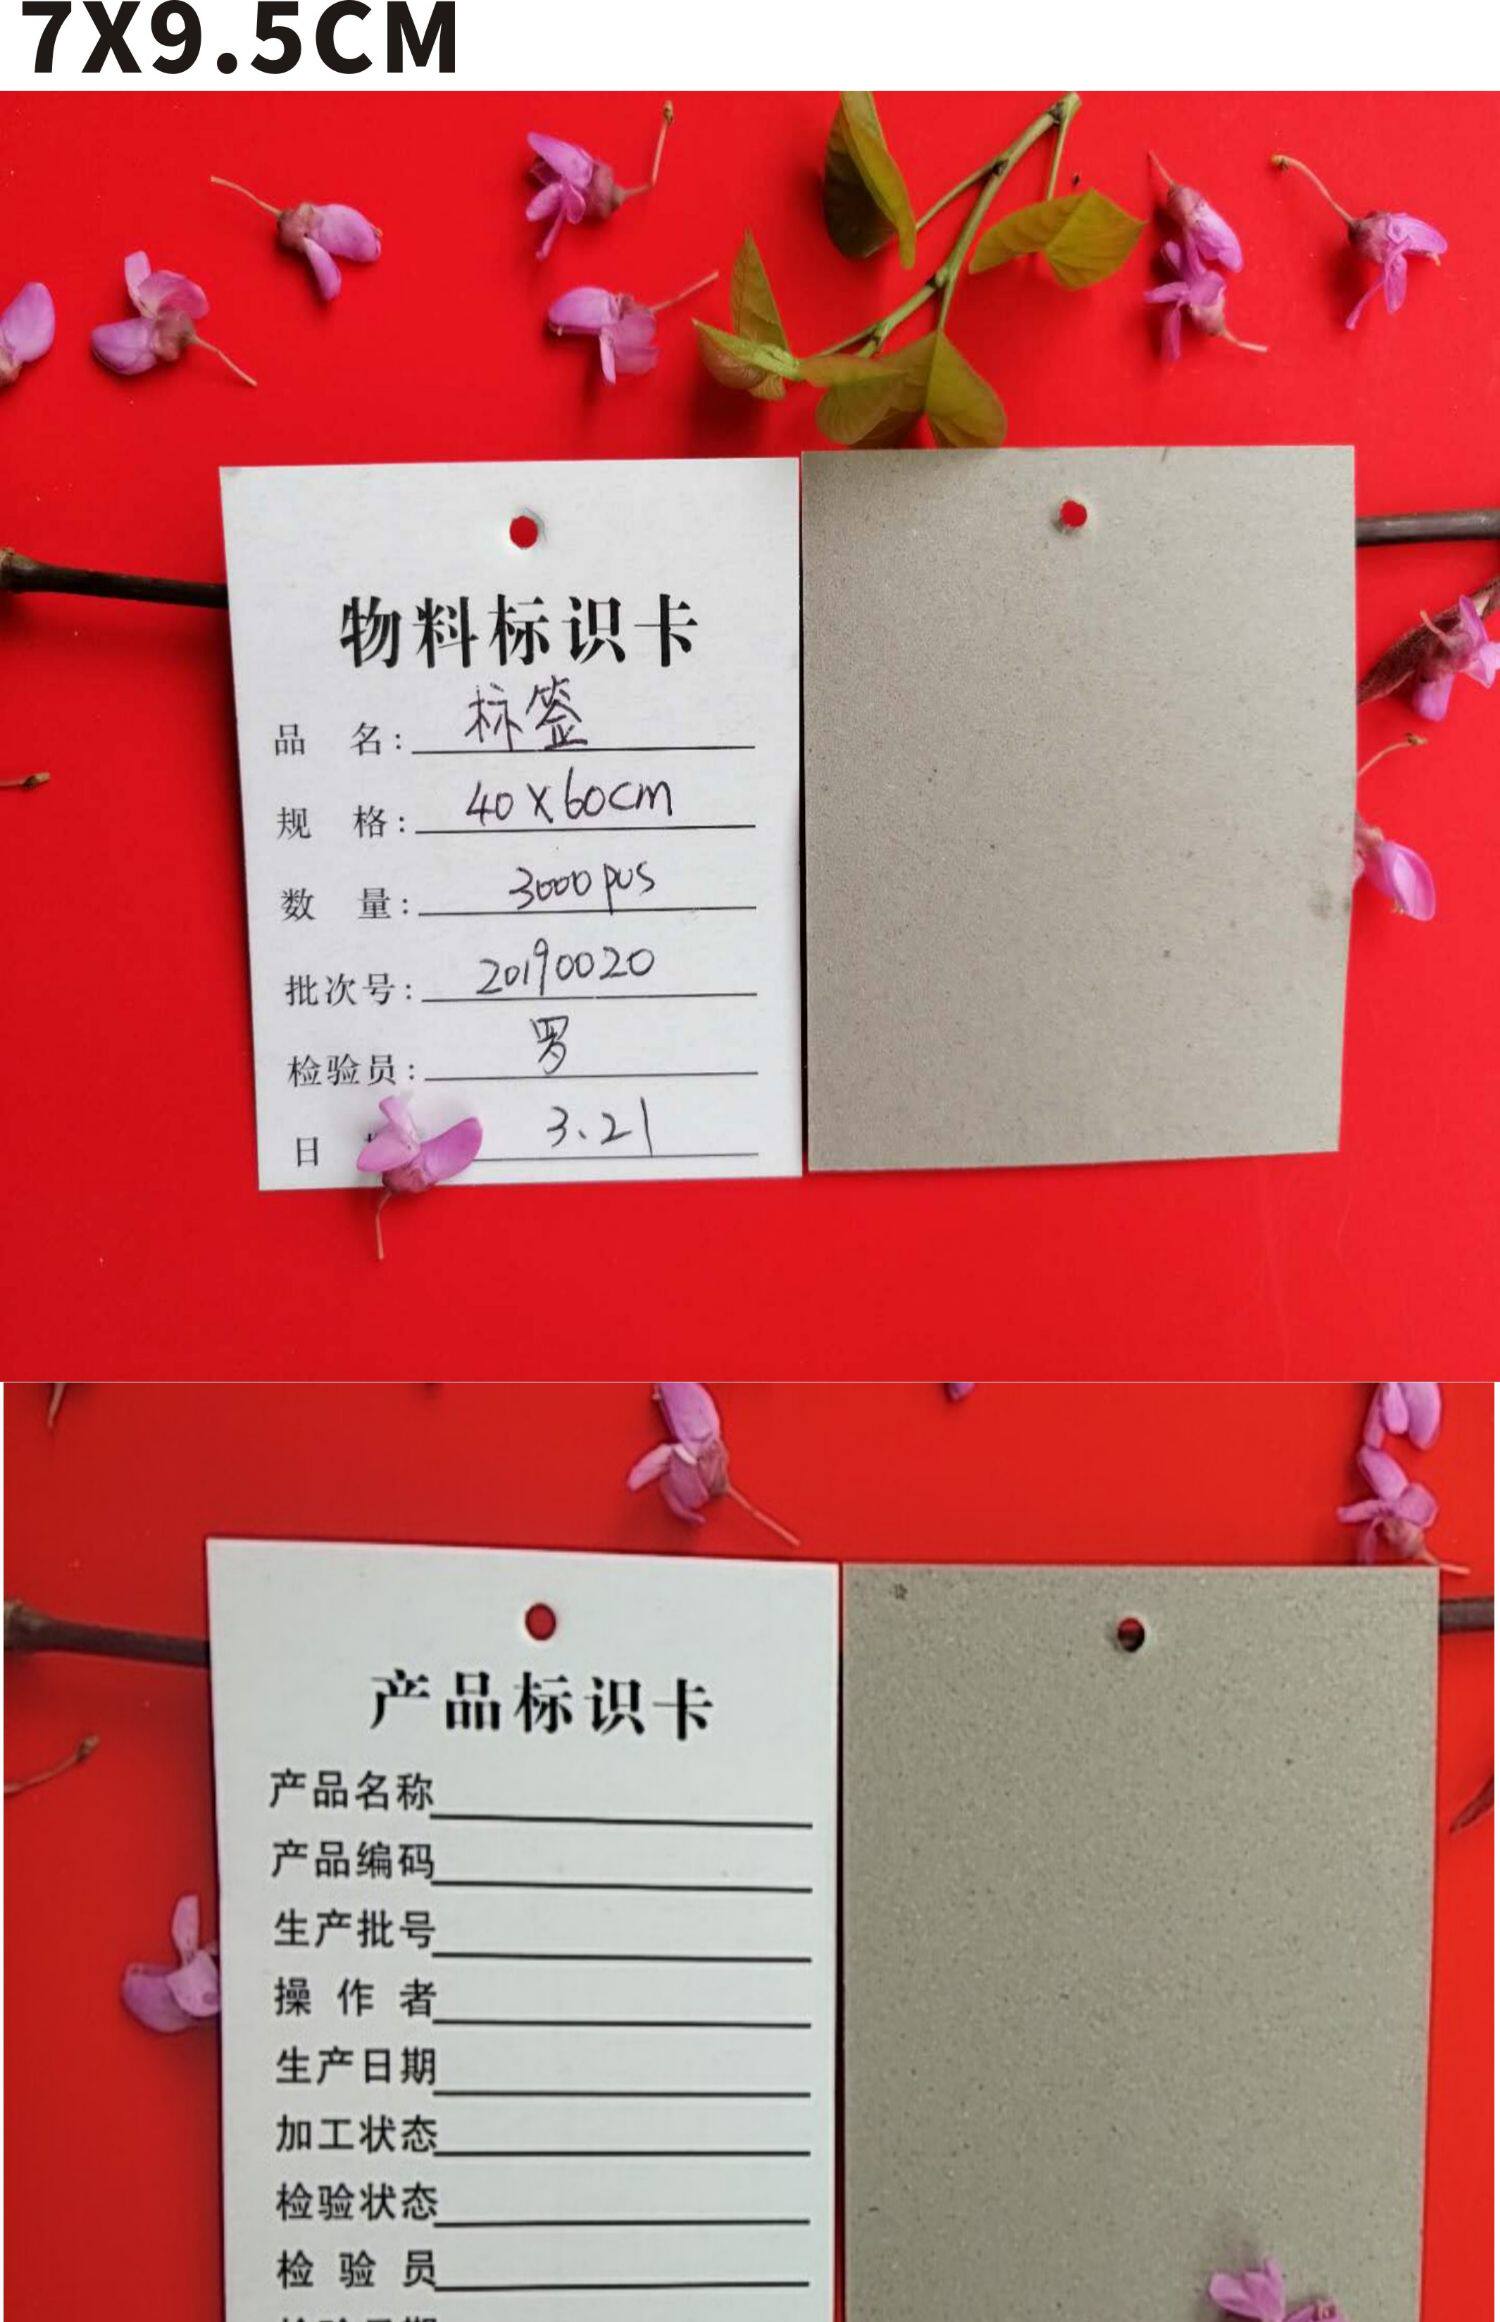 7X9.5CM
物料标识卡
品 名: 标签
规 格: 40X60cm
数 量: 3000pcs
批次号: 20190020
检验员: 罗
日 3.21
产品标识卡
产品名称
产品编码
生产批号
操作者
生产日期
加工状态
检验状态
检验员